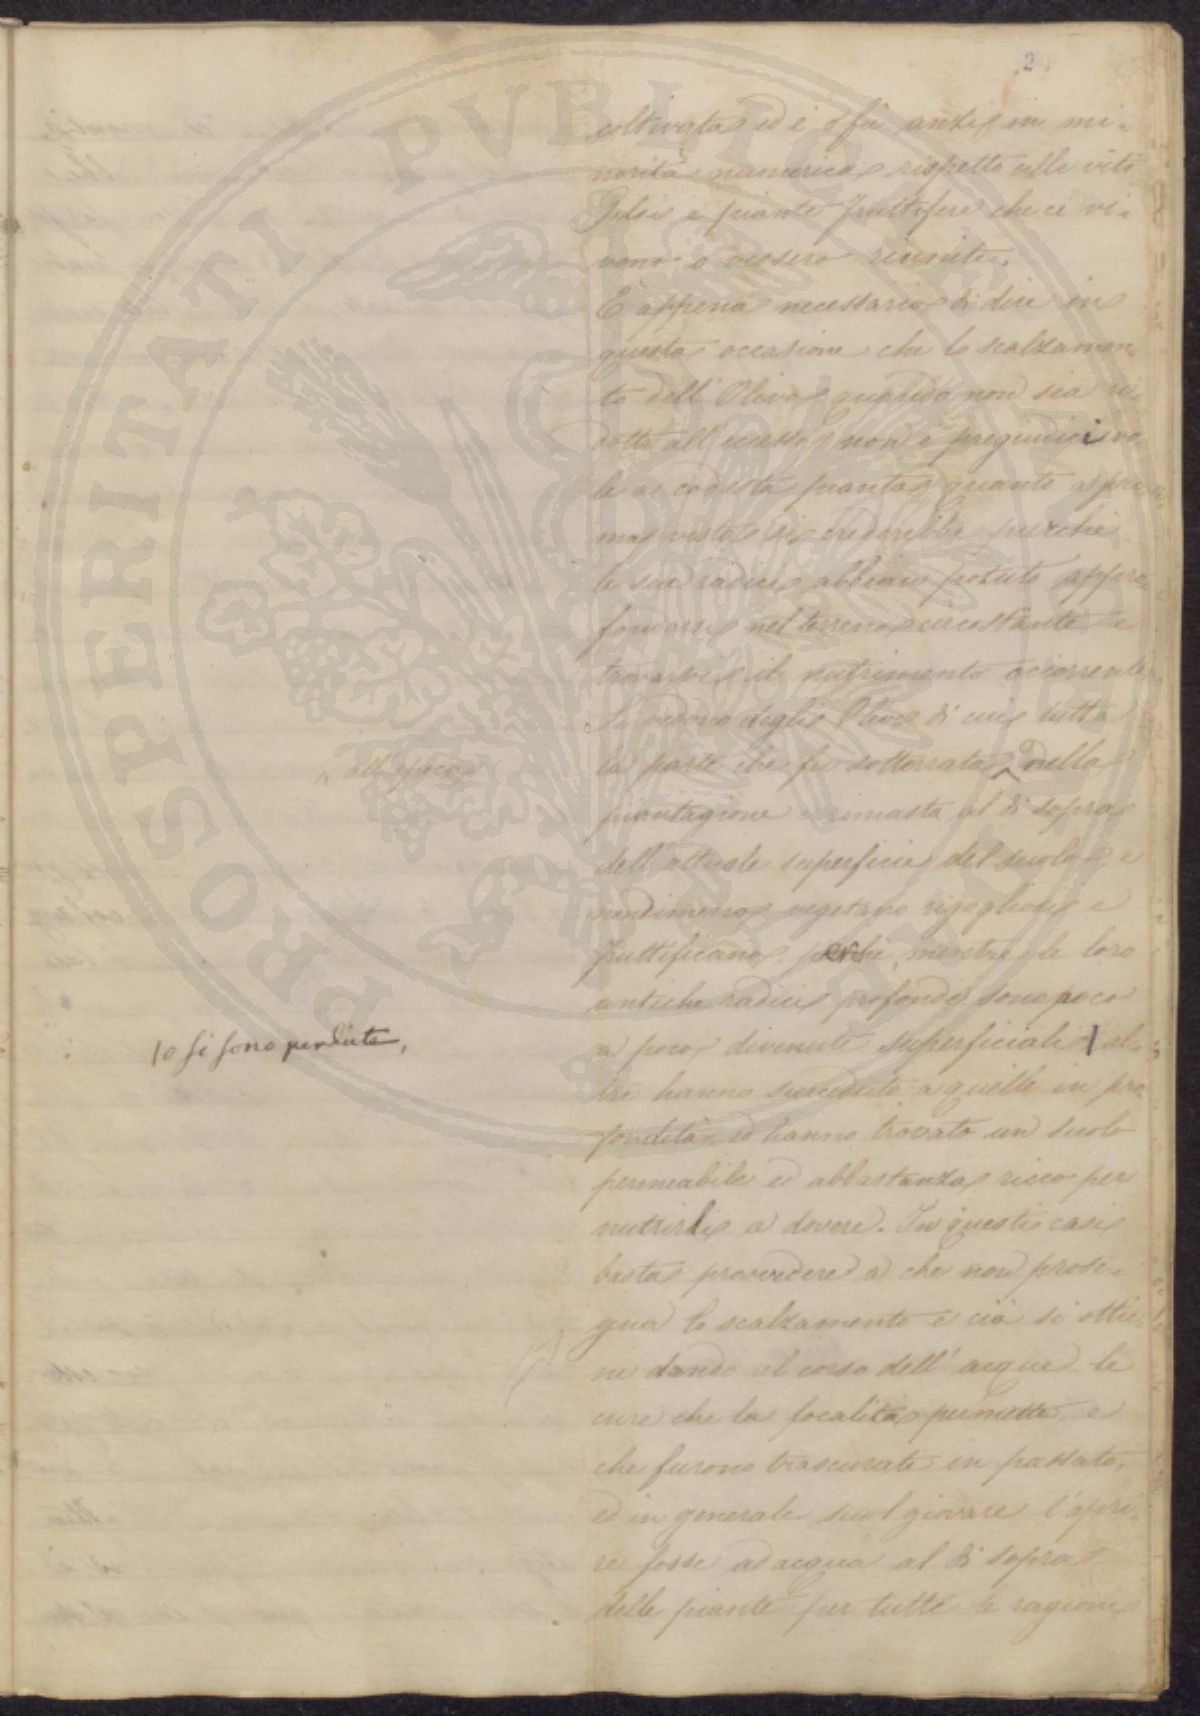 2
coltivata, ed è o fu anzi in mi-
norità numerica rispetto alle viti
Gelsi e piante fruttifere che ci vi-
vono o vissero riunite.
È appena necessario di dire in
questa occasione che lo scalzamen
to dell'Olivo, quando non sia ri-
dotto all'eccesso, non è pregiudicievo
le a codesta pianta, quanto a pri
ma vista si crederebbe, purchè
le sue radici abbiano potuto appro
fondarsi nel terreno circostante e
trovarvi il nutrimento occorrente
Si vedono degli Olivi di cui tutta
la parte che fu sotterrata ^ nella
^ all'epoca
piantagione è rimasta al di sopra
dell'attuale superficie del suolo, e
nondimeno vegetano rigogliosi e
fruttificano perchè, mentre le loro
antiche radici profonde sono poco
a poco divenute superficiali | al-
|o si sono perdute,
tre hanno succeduto a quelle in pro
fondità, ed hanno trovato un suolo
permeabile ed abbastanza ricco per
nutrirli a dovere. In questi casi
basta provvedere a che non prose-
gua lo scalzamento e ciò si ottie
ne dando al corso dell'acque le
cure che la località permette, e
che furono trascurate in passato,
ed in generale suol giovare l'apri
re fosse ad acqua al di sopra
delle piante per tutte le ragioni
PVBLICAE PROSPERITATI